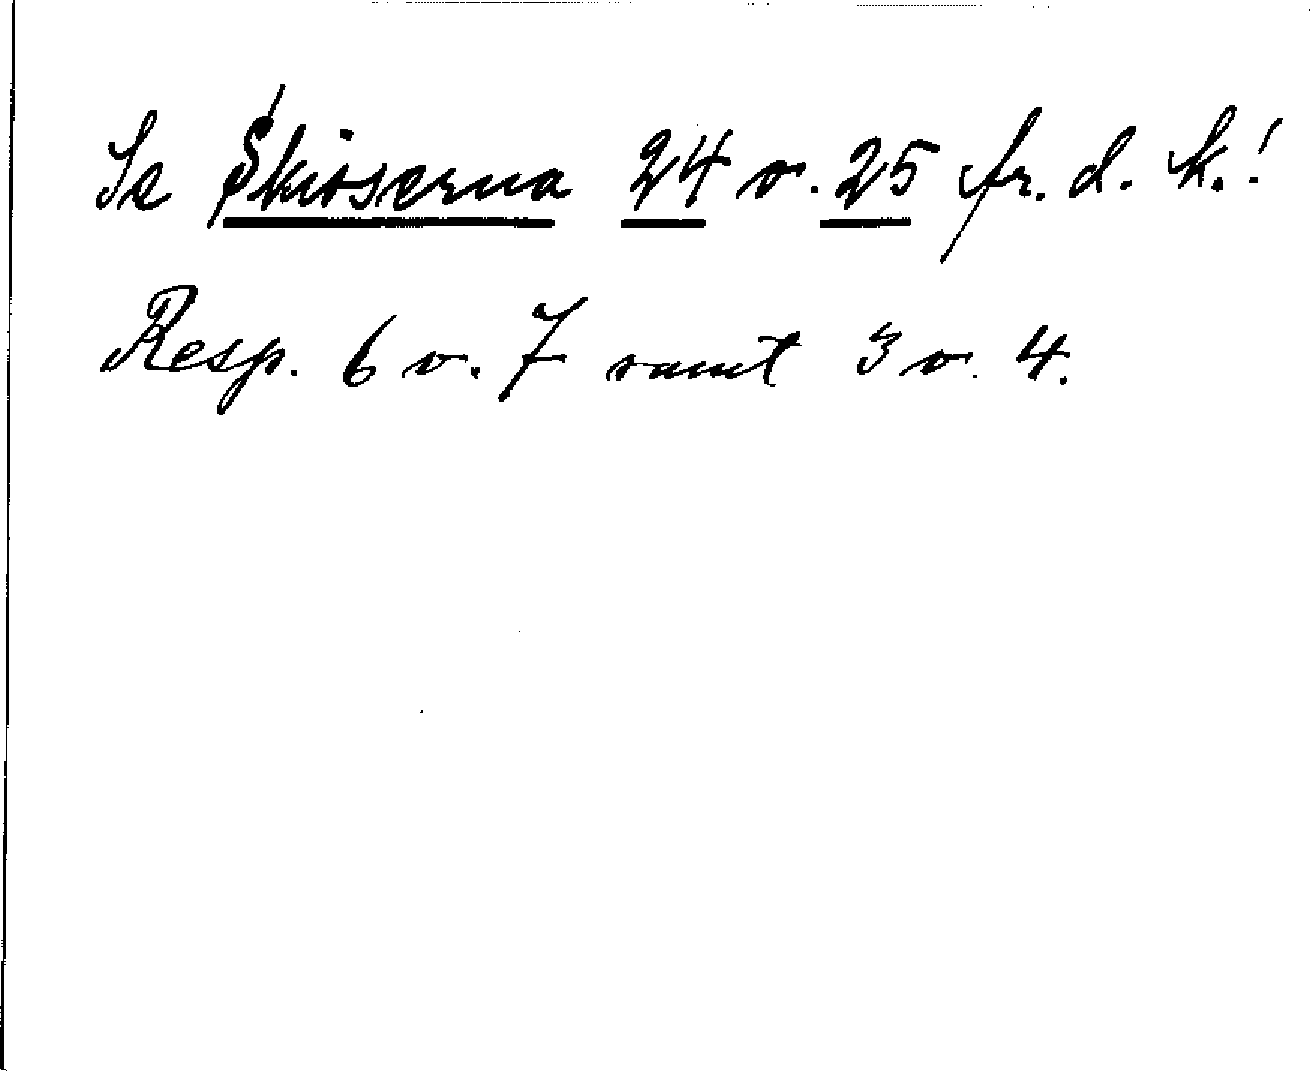 Se Skisserna 24 o. 25 fr. d. k.!
Resp. 6 o. 7 samt 3 o. 4.